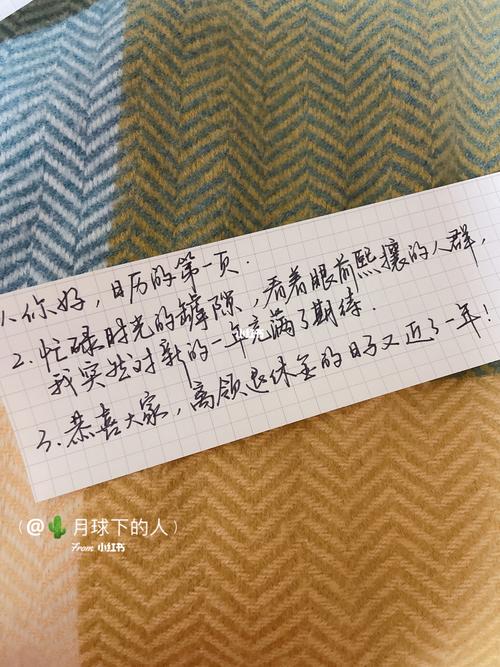 1.你好，日历的第一页.
2.忙碌时光的罅隙，看着眼前熙攘的人群，
我突然对新的一年充满了期待.
3.恭喜大家，离领退休金的日子又近了一年！
小红书
（@🌵月球下的人）
From 小红书